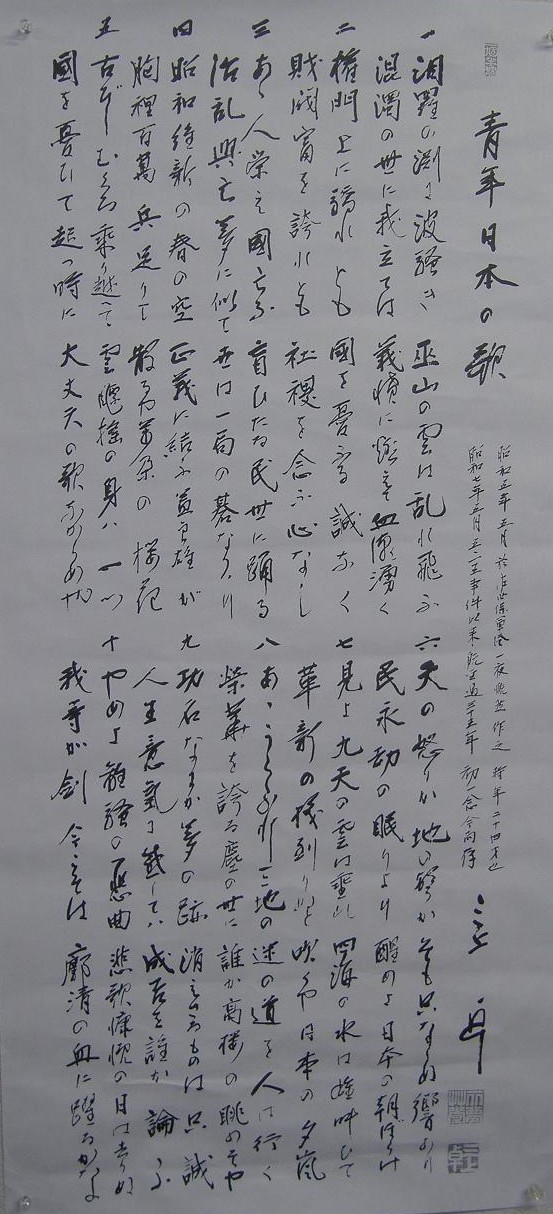 青年日本の歌
昭和五年五月 於佐世保軍港 一夜慨然作之 時年二十四才也
昭和七年五月五・一五事件以来既過三十五年 初一念今尚存
三上卓
一 汨羅の渕に波騒ぎ 巫山の雲は乱れ飛ぶ
混濁の世に我立てば 義憤に燃えて血潮湧く
二 権門上に驕れども 國を憂ふる誠なく
財閥富を誇れども 社稷を念ふ心なし
三 あゝ人栄え國亡ぶ 盲ひたる民世に踊る
治乱興亡夢に似て 世は一局の碁なりけり
四 昭和維新の春の空 正義に結ぶ益良雄が
胸裡百萬兵足りて 散るや萬朶の桜花
五 古びしむくろ乗り越えて 雲飄揺の身は一つ
國を憂ひて起つ時に 大丈夫の歌なからめや
六 天の怒りか地の聲か そも只ならぬ響あり
民永劫の眠りより 醒めよ日本の朝ぼらけ
七 見よ九天の雲は垂れ 四海の水は雄叫びて
革新の機到りぬと 吹くや日本の夕嵐
八 あゝうらぶれし天地の 迷の道を人は行く
栄華を誇る塵の世に 誰か高楼の眺めぞや
九 功名なにか夢の跡 消えざるものは只誠
人生意氣に感じては 成否を誰か論ふ
十 やめよ離騒の一悲曲 悲歌慷慨の日は去りぬ
我等が剣今こそは 廓清の血に躍るかな